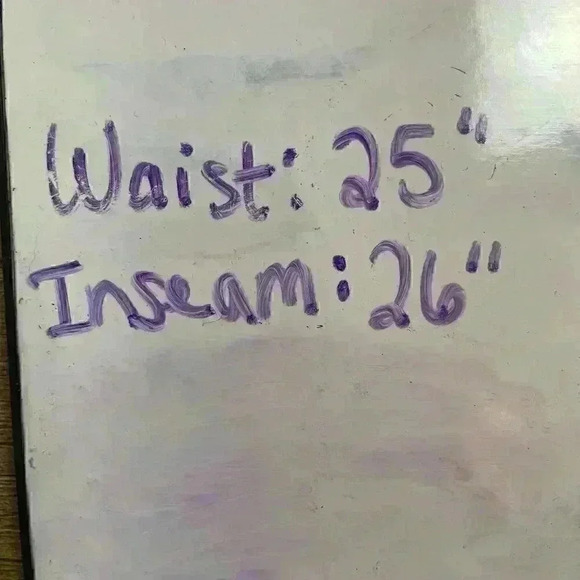 Waist: 25"
Inseam: 26"